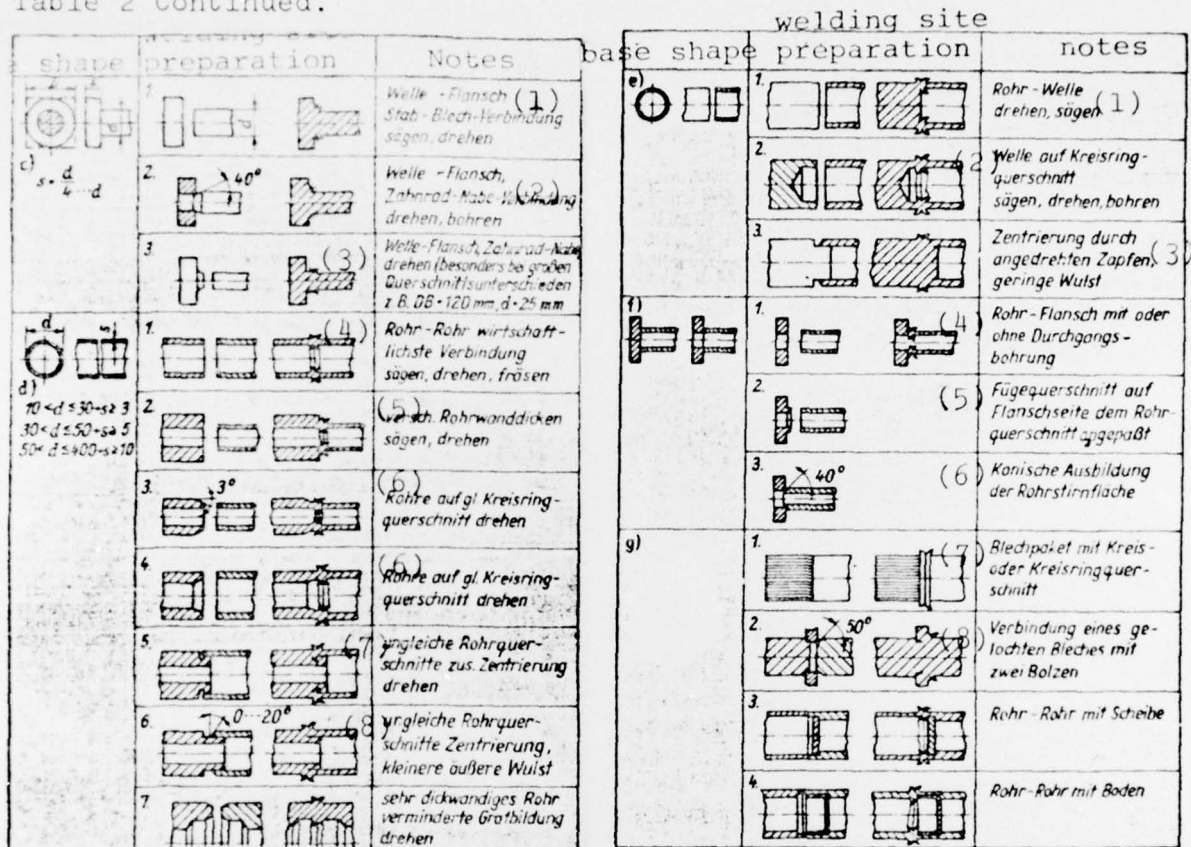 Table 2 Continued.
shape preparation Notes
1.
Welle - Flansch (1)
Stab - Blech-Verbindung
sägen, drehen
c)
s = d/4 ... d
2.
40°
Welle - Flansch, (2)
Zahnrad-Nabe-Verbindung
drehen, bohren
3.
(3)
Welle-Flansch, Zahnrad-Nabe
drehen (besonders bei großen
Querschnittsunterschieden
z. B. DB = 120 mm, d = 25 mm
d
s
d)
10 < d ≤ 30 → s ≥ 3
30 < d ≤ 50 → s ≥ 5
50 < d ≤ 400 → s ≥ 10
1.
(4)
Rohr - Rohr wirtschaft-
lichste Verbindung
sägen, drehen, fräsen
2.
(5)
versch. Rohrwanddicken
sägen, drehen
3.
3°
(6)
Rohre auf gl. Kreisring-
querschnitt drehen
4.
(6)
Rohre auf gl. Kreisring-
querschnitt drehen
5.
(7)
ungleiche Rohrquer-
schnitte zus. Zentrierung
drehen
6.
0...20°
(8)
ungleiche Rohrquer-
schnitte Zentrierung,
kleinere äußere Wulst
7.
sehr dickwandiges Rohr
verminderte Gratbildung
drehen
welding site
base shape preparation notes
e)
1.
Rohr - Welle
drehen, sägen (1)
2.
(2)
Welle auf Kreisring-
querschnitt
sägen, drehen, bohren
3.
Zentrierung durch
angedrehten Zapfen, (3)
geringe Wulst
f)
1.
(4)
Rohr - Flansch mit oder
ohne Durchgangs-
bohrung
2.
(5)
Fügequerschnitt auf
Flanschseite dem Rohr-
querschnitt angepaßt
3.
40°
(6)
Konische Ausbildung
der Rohrstirnfläche
g)
1.
(7)
Blechpaket mit Kreis-
oder Kreisringquer-
schnitt
2.
50°
(8)
Verbindung eines ge-
lochten Bleches mit
zwei Bolzen
3.
Rohr - Rohr mit Scheibe
4.
Rohr - Rohr mit Boden